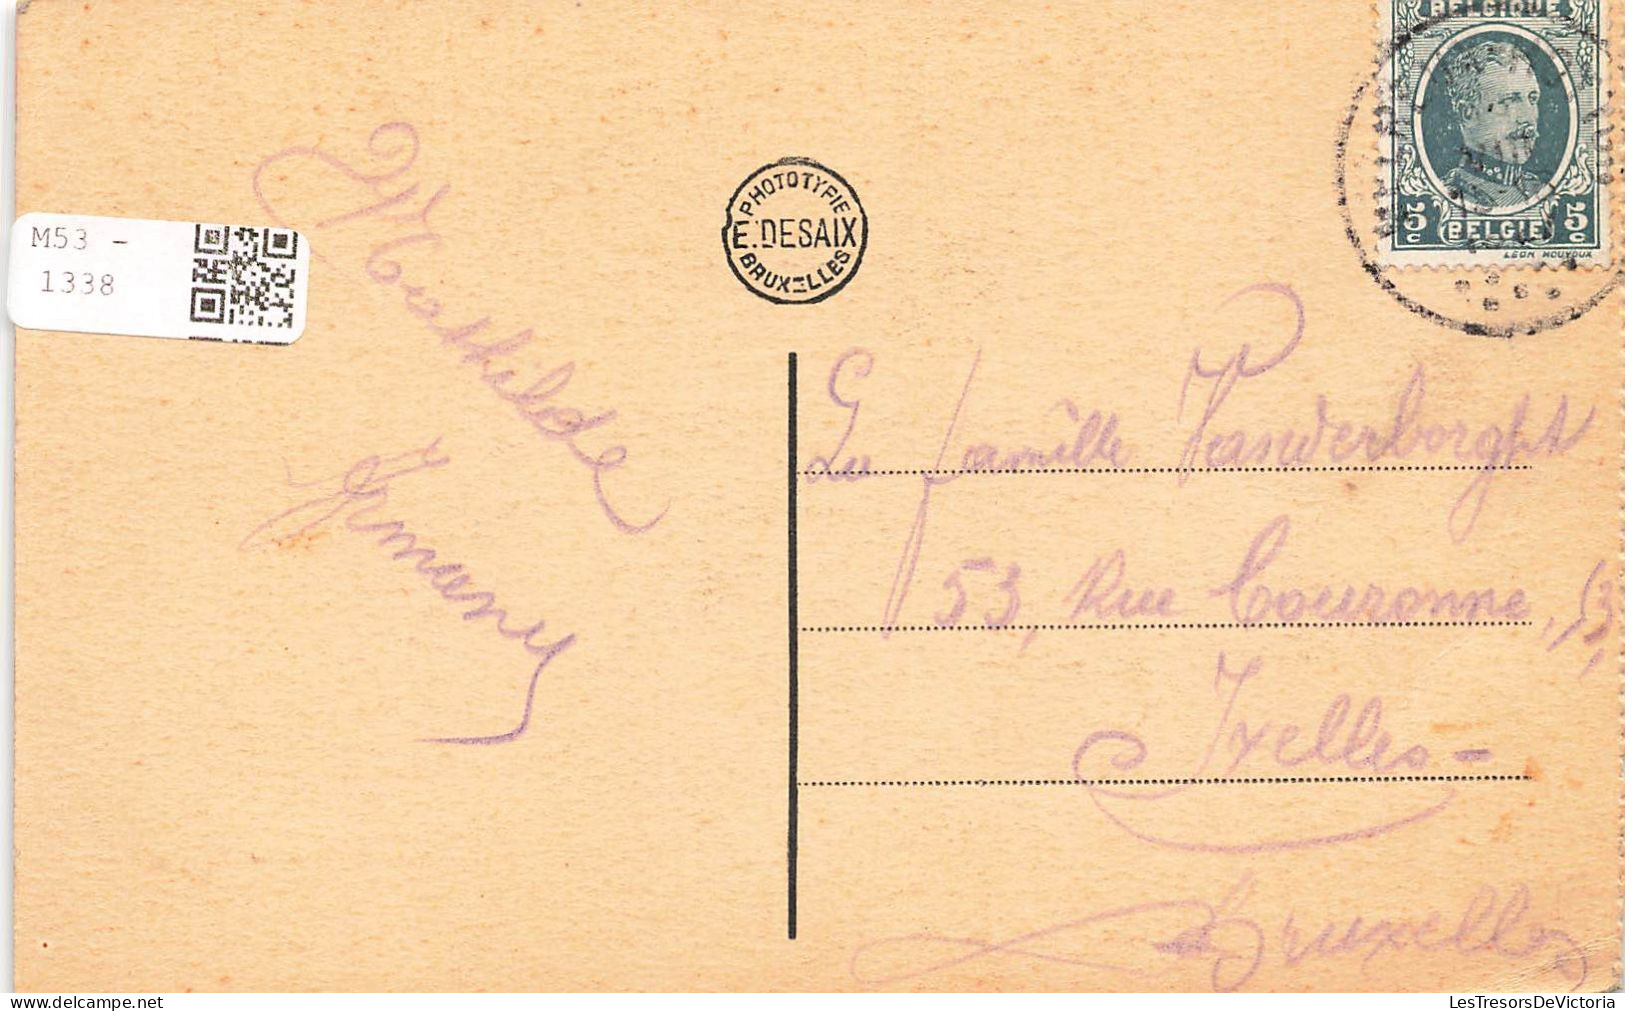 M53 -
1338
PHOTOTYPIE
E. DESAIX
BRUXELLES
BELGIQUE
5c BELGIE 5c
LEON HOUYOUX
Mathilde
Germany
La famille Vanderborght
53, Rue Couronne, 53,
Ixelles -
Bruxelles
LesTresorsDeVictoria